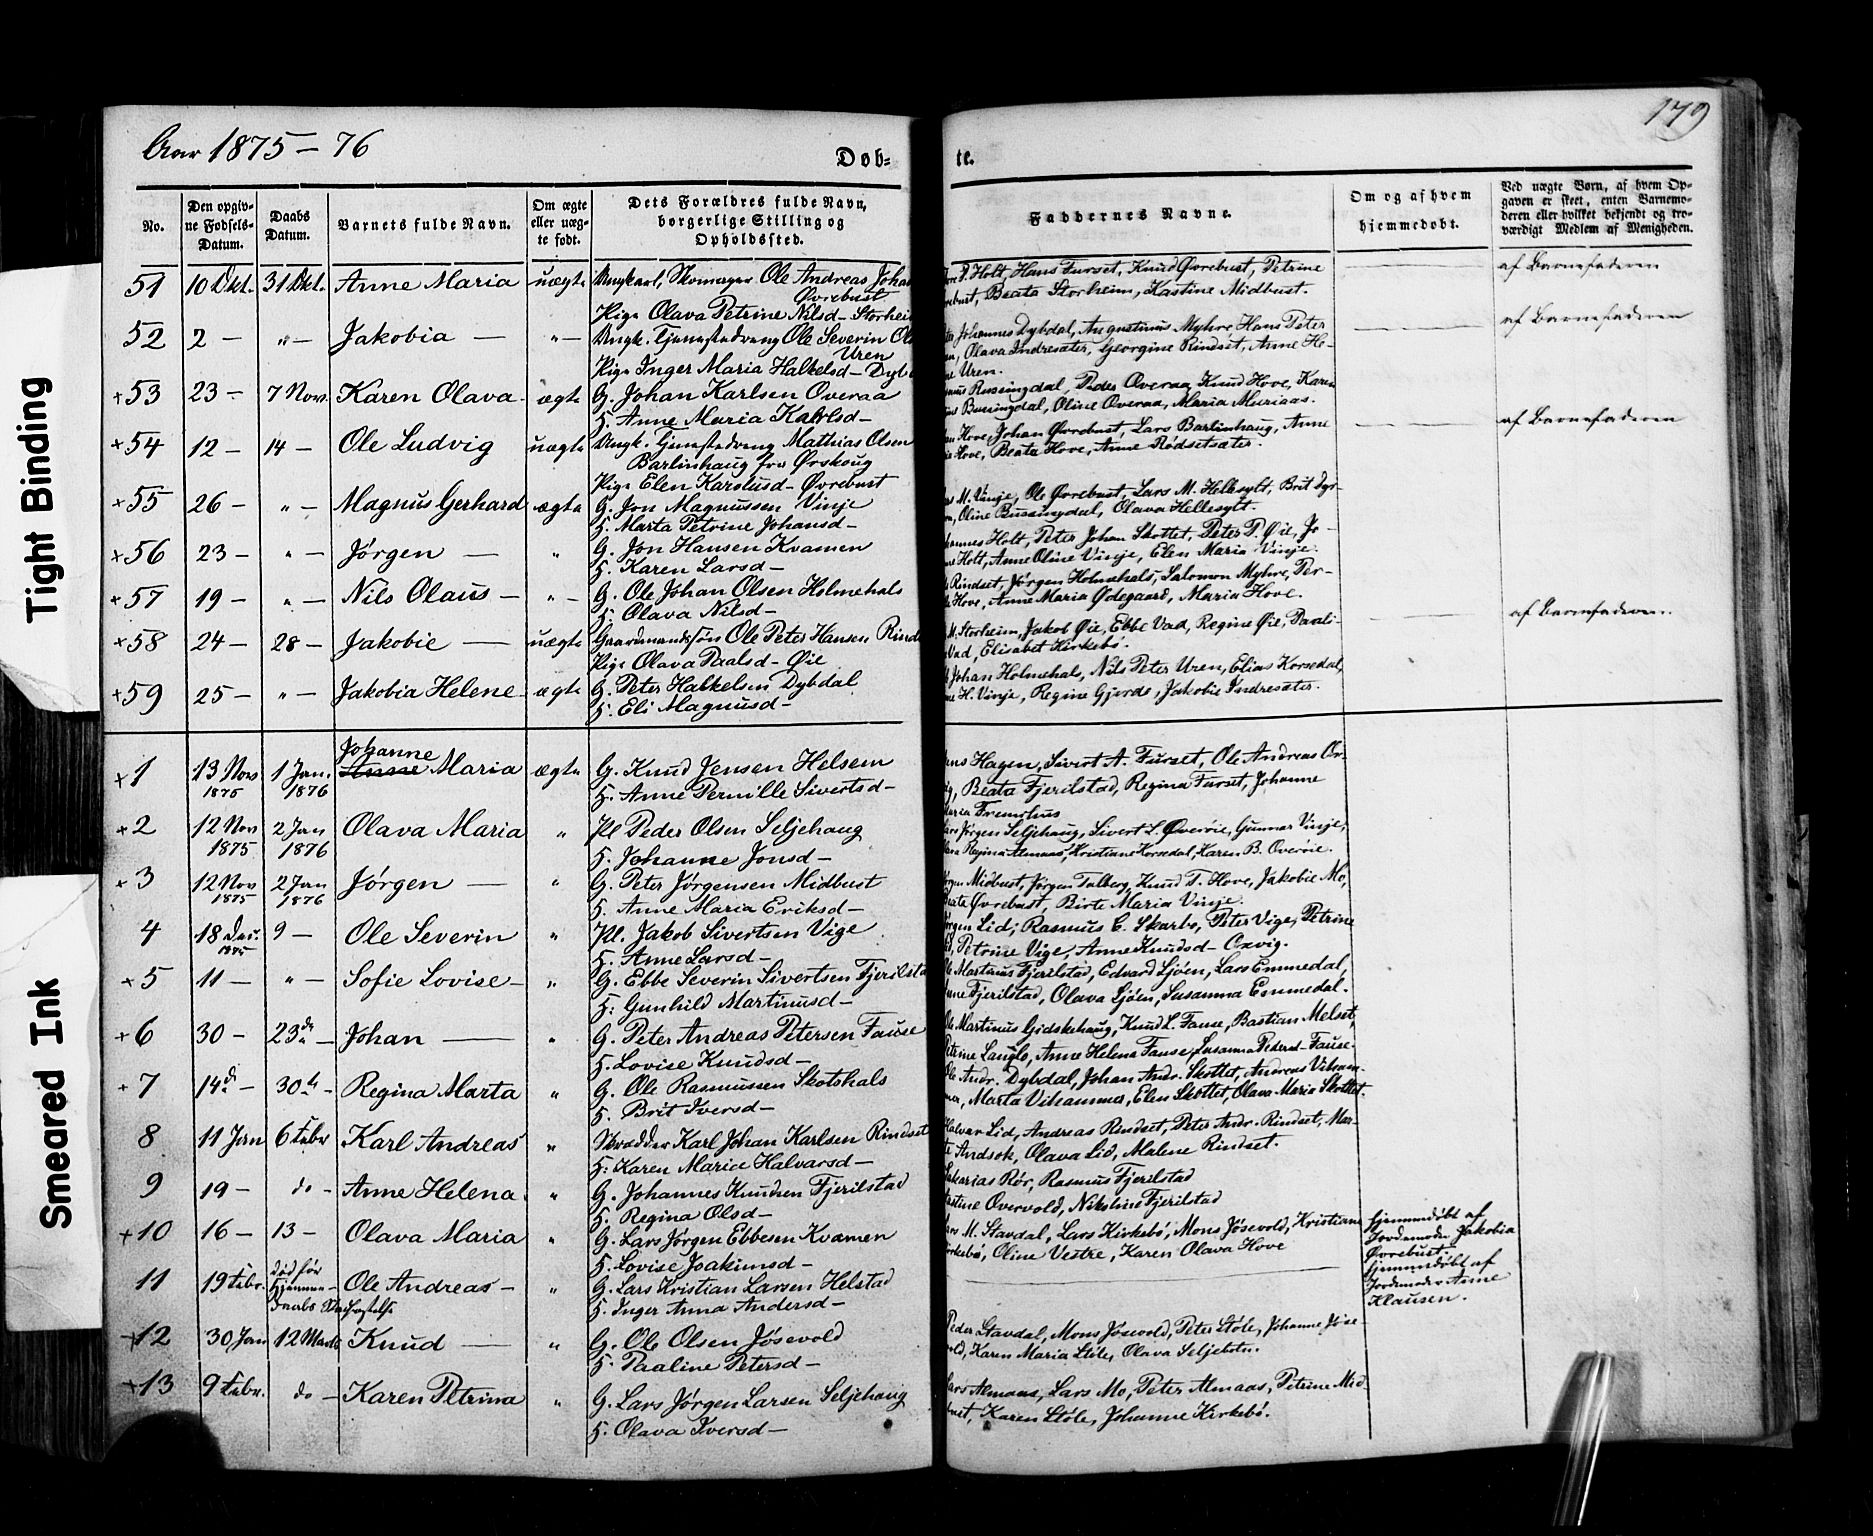 Tight Binding
Smeared Ink
Aar 1875 - 76
Døb-
te.
179
No.
Den opgiv-
ne Fødsels-
Datum.
Daabs
Datum.
Barnets fulde Navn.
Om ægte
eller uæg-
te født.
Dets Forældres fulde Navn,
borgerlige Stilling og
Opholdssted.
Faddernes Navne.
Om og af hvem
hjemmedøbt.
Ved uægte Børn, af hvem Op-
gaven er skeet, enten Barnemo-
deren eller hvilket bekjendt og tro-
værdigt Medlem af Menigheden.
51 10 Okt. 31 Okt. Anne Maria uægte Ungkarl, Skomager Ole Andreas Johan
Øvrebust
Pige Olava Petrine Nilsd- Storheim
P. Holt, Hans Furset, Knud Øvrebust, Petrine
Beata Storheim, Kastine Midbust.
af Barnefaderen
52 2 - " - Jakobia - " - Ungk. Ole Severin
Uren
Pige Inger Maria Halkelsd-
Johannes Dybdal, Augustinus Myhre, Hans Peter
Olava Indresæter, Georgine Rindset, Anne He-
Uren.
af Barnefaderen
+53 23 - 7 Nov. Karen Olava - ægte G. Johan Karlsen Overaa
H. Anne Maria Karlsd -
Peder Overaa, Knud Hove, Karen
Oline Overaa, Maria Muriaas.
+54 12 - 14 - Ole Ludvig uægte Ungk. Mathias Olsen
Barlinhaug fra Ørskoug
Pige Elen Karslusd- Øvrebust
Hove, Johan Øvrebust, Lars Barlinhaug, Anne
Hove, Beata Hove, Anne Rødsetsæter.
af Barnefaderen
+55 26 - " - Magnus Gerhard ægte G. Jon Magnussen Vinje
H. Marta Petrine Johansd -
M. Vinje, Ole Øvrebust, Lars M. Hellesylt, Brit Dyr-
Oline Busengdal, Olava Hellesylt.
+56 23 - " - Jørgen - " G. Jon Hansen Kvamen
H. Karen Larsd -
Holt, Peter Johan Skottet, Peter P. Øie, Jo-
Holt, Anne Oline Vinje, Elen Maria Vinje.
+57 19 - " - Nils Olaus - " - G. Ole Johan Olsen Holmehals
H. Olava Nilsd -
Rindset, Jørgen Holmehals, Salomon Myhre, Per-
Hove, Anne Maria Ødegaard, Maria Hove.
+58 24 - 28 - Jakobie - uægte Gaardmandssøn Ole Peter Hansen
Pige Olava Paalsd- Øie
M. Storheim, Jakob Øie, Ebbe Vad, Regine Øie, Pauli-
Vad, Elisabet Kirkebø.
af Barnefaderen.
+59 25 - " - Jakobia Helene - ægte G. Peter Halkelsen Dybdal
H. Eli Magnusd -
Johan Holmehals, Nils Peter Uren, Elias Korsedal,
H. Vinje, Regine Gjerde, Jakobie Indresæter.
+1 13 Nov 1875 1 Jan. 1876 Johanne
Anne Maria ægte G. Knud Jensen Helsem
H. Anne Pernille Sivertsd -
Hagen, Sivert A. Furset, Ole Andreas Ov-
Beata Fjerilstad, Regina Furset, Johanne
Maria Fremshus
+2 12 Nov 1875 2 Jan 1876 Olava Maria " Pl Peder Olsen Seljehaug
H. Johanne Jonsd -
Jørgen Seljehaug, Sivert L. Øverøie, Gunnar Vinje,
Regina Almaas, Kristiane Korsedal, Karen B. Overøie.
+3 12 Nov 1875 2 Jan 1876 Jørgen - " G. Peter Jørgensen Midbust
H. Anne Maria Eriksd -
Jørgen Midbust, Jørgen Talberg, Knud T. Hove, Jakobie Mo,
Øvrebust, Birte Maria Vinje.
4 18 Dec. 1875 9 - Ole Severin " Pl. Jakob Sivertsen Vige
H. Anne Larsd -
Jørgen Lid, Rasmus E. Skarbø, Peter Vige, Petrine
Petrine Vige, Anne Knudsd-
+5 11 - " - Sofie Lovise - " G. Ebbe Severin Sivertsen
H. Gunhild Martinusd -
Martinus Fjerilstad, Edvard Ljøen, Lars Emmedal,
Fjerilstad, Olava Ljøen, Susanna Emmedal.
+6 30 - 23de - Johan - " G. Peter Andreas Petersen Fause
H. Lovise Knudsd -
Ole Martinus Gidskehaug, Knud L. Fause, Bastian Melset,
Petrine Langlo, Anne Helena Fause, Susanna Pedersd- Fause.
+7 14de - 30te - Regina Marta " G. Ole Rasmussen Skotshals
H. Brit Iversd -
Ole Andr. Dybdal, Johan Andr. Skottet, Andreas Viham-
mer, Marta Vihammer, Elen Skottet, Olava Maria Skottet.
8 11 Jan 6 Febr Karl Andreas " Skrædder Karl Johan Karlsen Rindset
H. Karen Marice Halvarsd -
Halvar Lid, Andreas Rindset, Peter Andr. Rindset, Mar-
te Andsok, Olava Lid, Malene Rindset.
9 19 - do - Anne Helena " G. Johannes Knudsen Fjerilstad
H. Regina Olsd -
Sakarias Rør, Rasmus Fjerilstad
Overvold, Nikoline Fjerilstad
+10 16 - 13 - Olava Maria " G. Lars Jørgen Ebbesen Kvamen
H. Lovise Joakimsd -
Lars M. Stavdal, Lars Kirkebø, Mons Jøsevold, Kristiane
Kirkebø, Oline Vestre, Karen Olava Hove
hjemmedøbt af
Jordemoder Jakobia
Øvrebust.
11 19 Febr. død før
Hjemme-
daabs Stadfæstelse Ole Andreas - " G. Lars Kristian Larsen Helstad
H. Inger Anna Andersd -
hjemmedøbt af
Jordemoder Anne
Klausen.
+12 30 Jan 12 Marts Knud - " G. Ole Olsen Jøsevold
H. Paaline Petersd -
Peder Stavdal, Mons Jøsevold, Peter Støle, Johanne Jøse-
vold, Karen Maria Støle, Olava Seljebotn.
+13 9 Febr. do - Karen Petrina " G. Lars Jørgen Larsen Seljehaug
H. Olava Iversd -
Lars Almaas, Lars Mo, Peter Almaas, Petrine Mid-
bust, Karen Støle, Johanne Kirkebø.